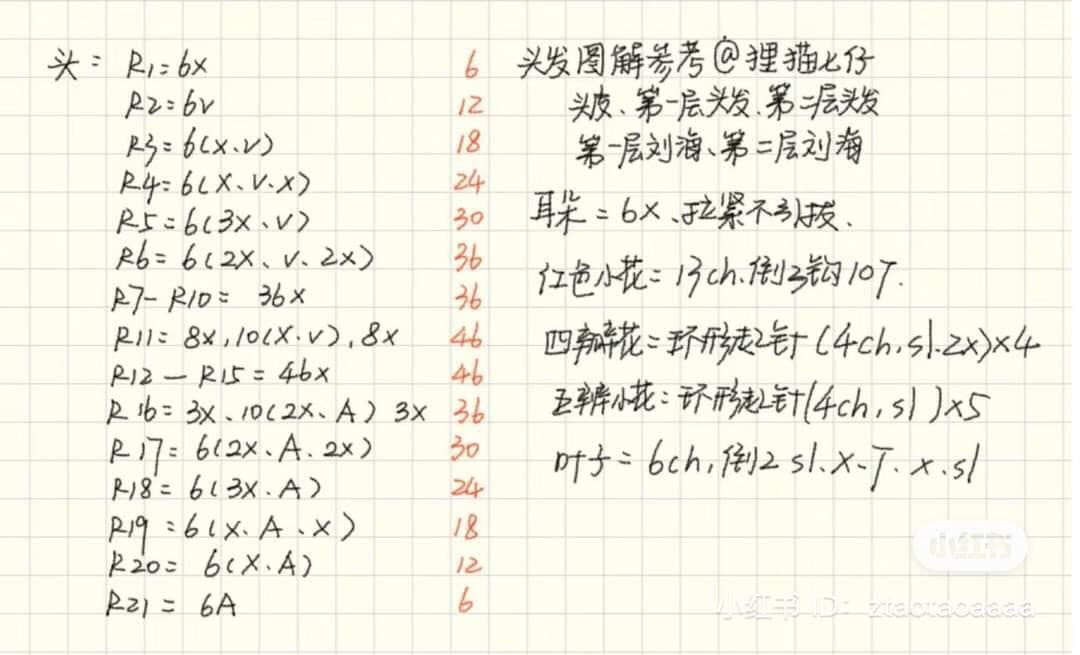 头: R1=6x 6
R2=6v 12
R3=6(x.v) 18
R4=6(x、v.x) 24
R5=6(3x、v) 30
R6=6(2x、v.2x) 36
R7-R10= 36x 36
R11=8x,10(x.v),8x 46
R12-R15=46x 46
R16=3x、10(2x、A) 3x 36
R17=6(2x、A.2x) 30
R18=6(3x.A) 24
R19=6(x.A.x) 18
R20= 6(x.A) 12
R21= 6A 6
头发图解参考@狸猫七仔
头皮、第一层头发、第二层头发
第一层刘海、第二层刘海
耳朵=6x、拉紧不引拔.
红色小花=13ch.倒3钩10T.
四瓣花=环形起2针(4ch,sl.2x)×4
五辨小花:环形起2针(4ch,sl)×5
叶子=6ch,倒2 sl.x.T.x.sl
小红书
小红书 ID: ztaotaoaaaa